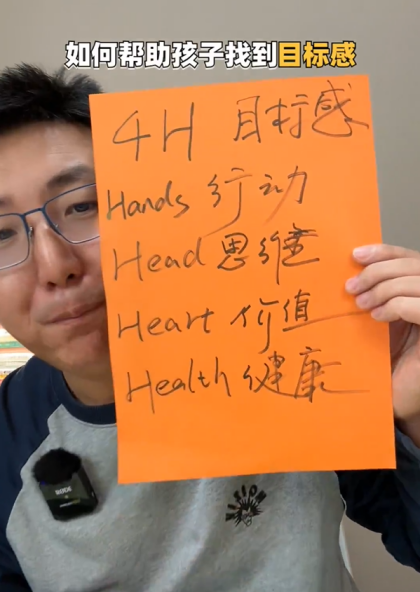 如何帮助孩子找到目标感
4H 目标感
Hands 行动
Head 思维
Heart 价值
Health 健康